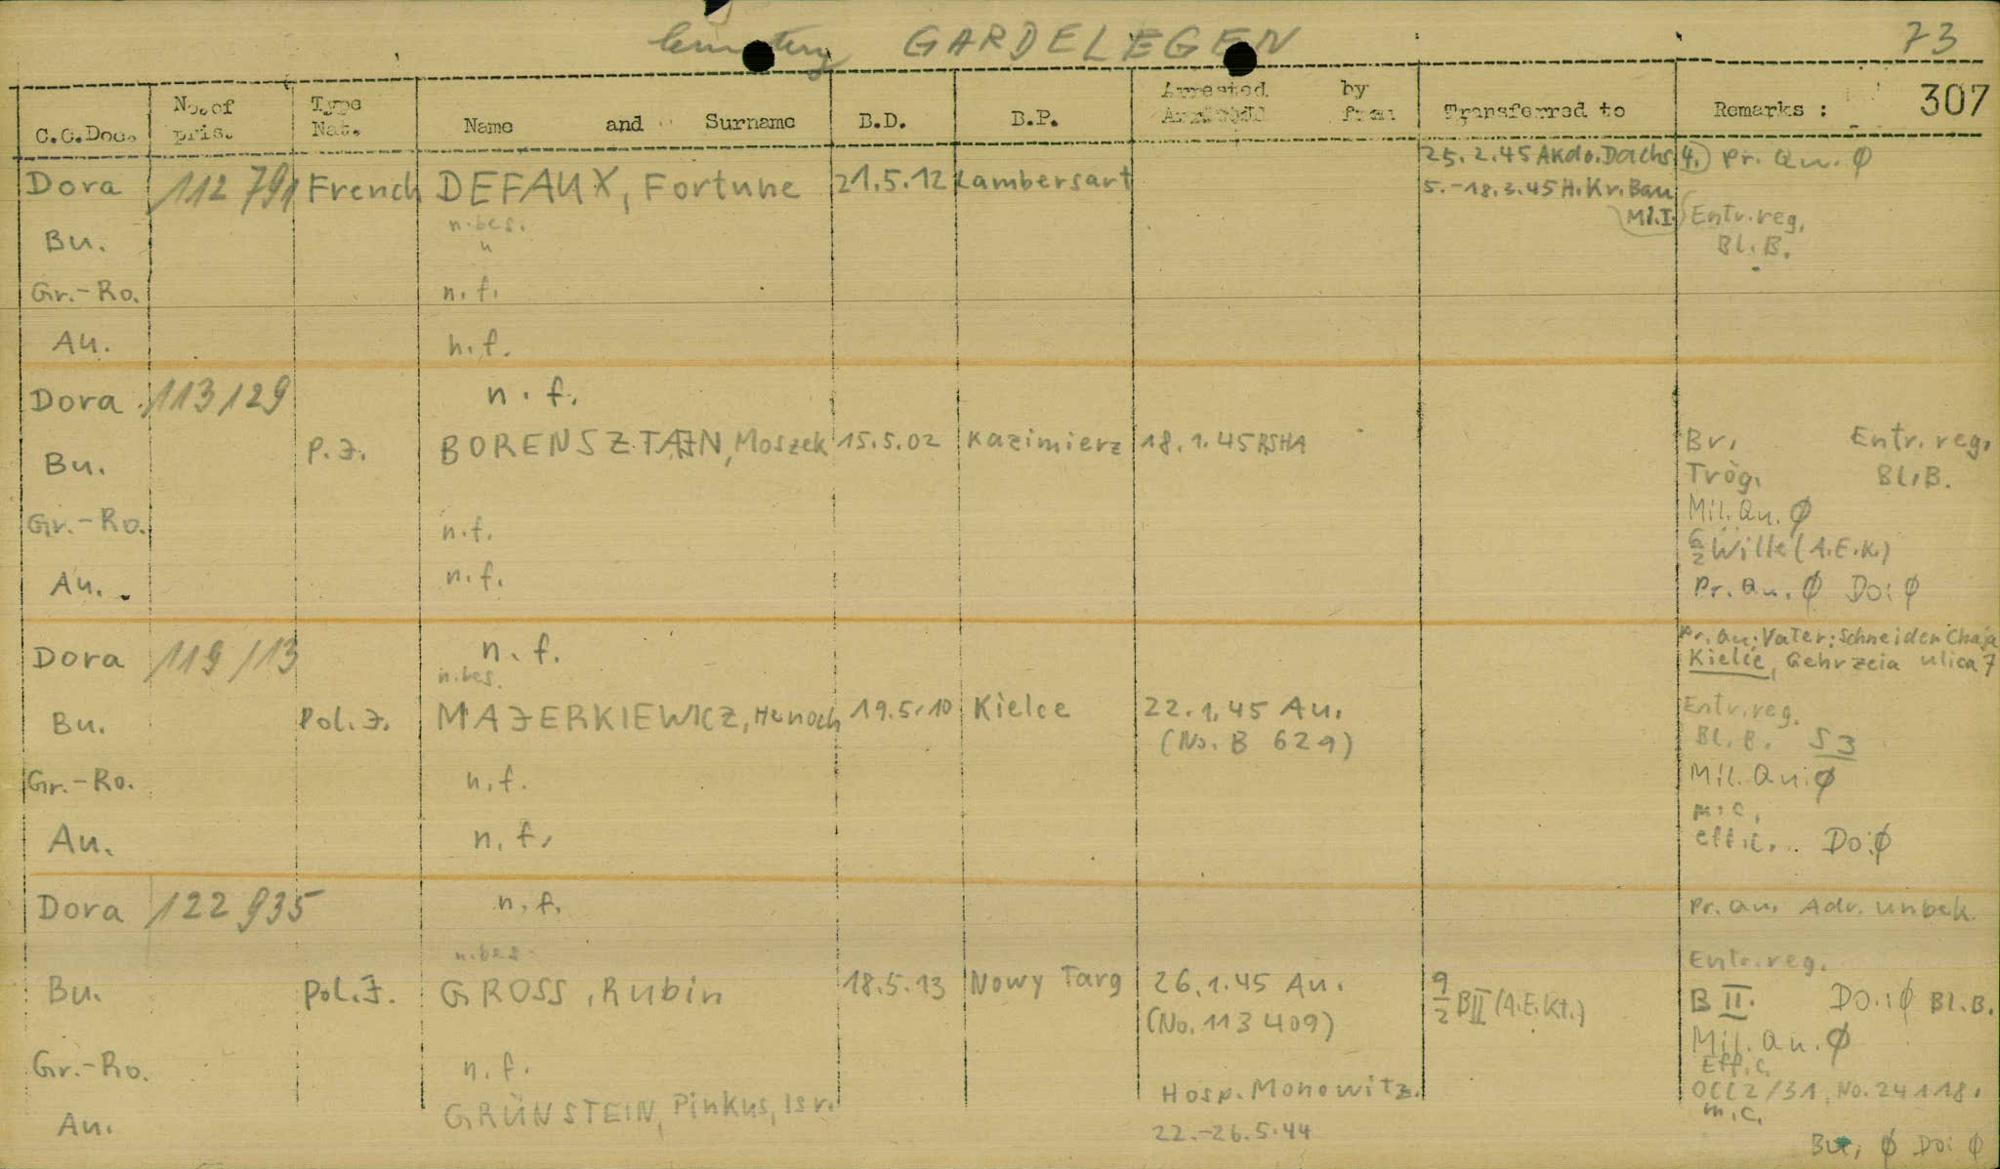 Cemetery GARDELEGEN 73
C.C.Doc. No.of pris. Type Nat. Name and Surname B.D. B.P. Arrested by from Transferred to Remarks : 307
Dora 112 791 French DEFAUX, Fortune 21.5.12 Lambersart 25.2.45 AKdo.Dachs 4.) Pr. Qu. Ø
5.-18.3.45 H.Kr.Bau
n.bes. Ml.I. Entr.reg.
Bu. " Bl.B.
Gr.-Ro. n.f.
Au. n.f.
Dora 113 129 n.f.
Bu. P.J. BORENSZTAJN, Moszek 15.5.02 Kazimierz 18.1.45 RSHA Br. Entr.reg.
Trög. Bl.B.
Mil.Qu. Ø
Gr.-Ro. n.f. 6/2 Wille (A.E.K.)
Au. n.f. Pr. Qu. Ø Do: Ø
Dora 119 113 n.f. Pr.Qu: Vater: Schneider Chaja
n.bes. Kielce, Gehrzeia ulica 7
Bu. Pol.J. MAJERKIEWICZ, Henoch 19.5.10 Kielce 22.1.45 Au. Entr.reg.
(No. B 629) Bl.B. S3
Gr.-Ro. n.f. Mil.Qu: Ø
m.c.
Au. n.f. eff.c. Do: Ø
Dora 122 935 n.f. Pr.Qu. Adr. unbek.
n.bes. Entr.reg.
Bu. Pol.J. GROSS, Rubin 18.5.13 Nowy Targ 26.1.45 Au. 9/2 BII (A.E.Kt.) B II. Do.: Ø Bl.B.
(No. 113 409) Mil.Qu. Ø
Gr.-Ro. n.f. Eff.c.
Hosp. Monowitz OCC2/31, No. 24118.
Au. GRÜNSTEIN, Pinkus, Isr. 22.-26.5.44 m.c.
Bu; Ø Do: Ø